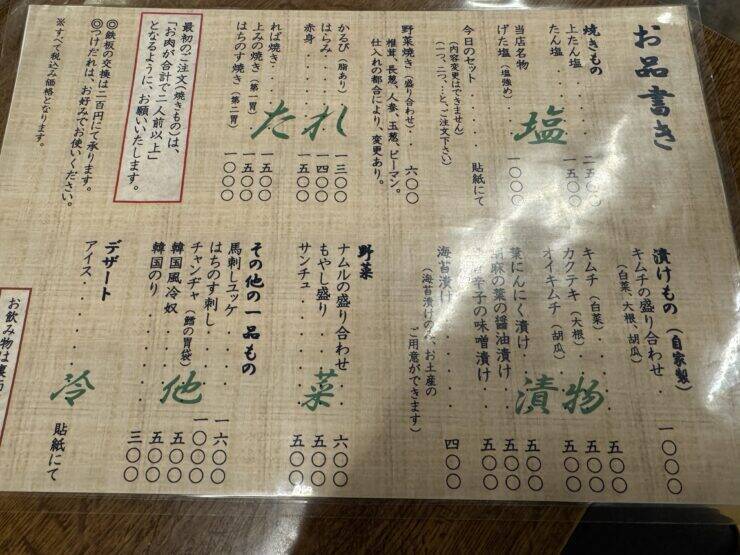 お品書き
焼きもの
上たん塩・・・・二五〇〇
たん塩・・・・一五〇〇
塩
当店名物
げた塩（塩強め）・・・一〇〇〇
今日のセット 貼紙にて
（内容変更はできません）
（一つ、二つ、…と、ご注文下さい）
野菜焼き（盛り合わせ）・・六〇〇
椎茸、長葱、人参、玉葱、ピーマン。
仕入れの都合により、変更あり。
たれ
かるび（脂あり）・・・一三〇〇
はらみ・・・・一四〇〇
赤身・・・・一五〇〇
れば焼き・・・・一五〇〇
上みの焼き（第一胃）・・一五〇〇
はちのす焼き（第二胃）一〇〇〇
最初のご注文（焼きもの）は、
「お肉が合計で二人前以上」
となるように、お願いいたします。
◎鉄板の交換は二百円にて承ります。
◎つけだれは、お好みでお使いください。
※すべて税込み価格となります。
漬けもの（自家製）
キムチの盛り合わせ・・・一〇〇〇
（白菜、大根、胡瓜）
漬物
キムチ（白菜）・・・五〇〇
カクテキ（大根）・・・五〇〇
オイキムチ（胡瓜）・・・五〇〇
葉にんにく漬け・・・五〇〇
胡麻の葉の醤油漬け・・・五〇〇
辛子の味噌漬け・・・五〇〇
海苔漬け・・・四〇〇
（海苔漬けのみ、お土産の
ご用意ができます）
野菜
菜
ナムルの盛り合わせ・・六〇〇
もやし盛り・・・五〇〇
サンチュ・・・五〇〇
その他の一品もの
他
馬刺しユッケ・・・一六〇〇
はちのす刺し・・・一〇〇〇
チャンヂャ（鱈の胃袋）・・五〇〇
韓国風冷奴・・・五〇〇
韓国のり・・・三〇〇
デザート
冷
アイス・・・・貼紙にて
お飲み物は裏